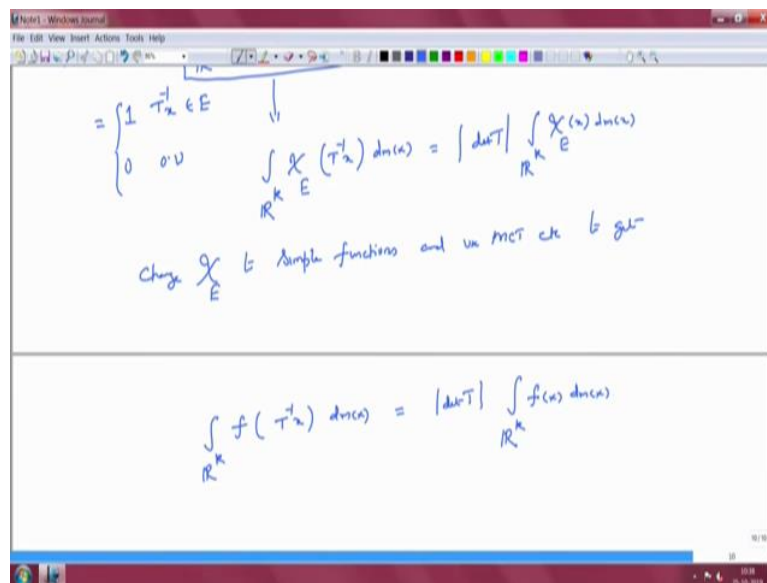 Note1 - Windows Journal
File Edit View Insert Actions Tools Help
IR
= { 1 T⁻¹x ∈ E
0 o.w
∫_{ℝ^k} χ_E (T⁻¹x) dm(x) = |det T| ∫_{ℝ^k} χ_E(x) dm(x)
Change χ_E to simple functions and use MCT etc to get
∫_{ℝ^k} f(T⁻¹x) dm(x) = |det T| ∫_{ℝ^k} f(x) dm(x)
10/10
10
10:38